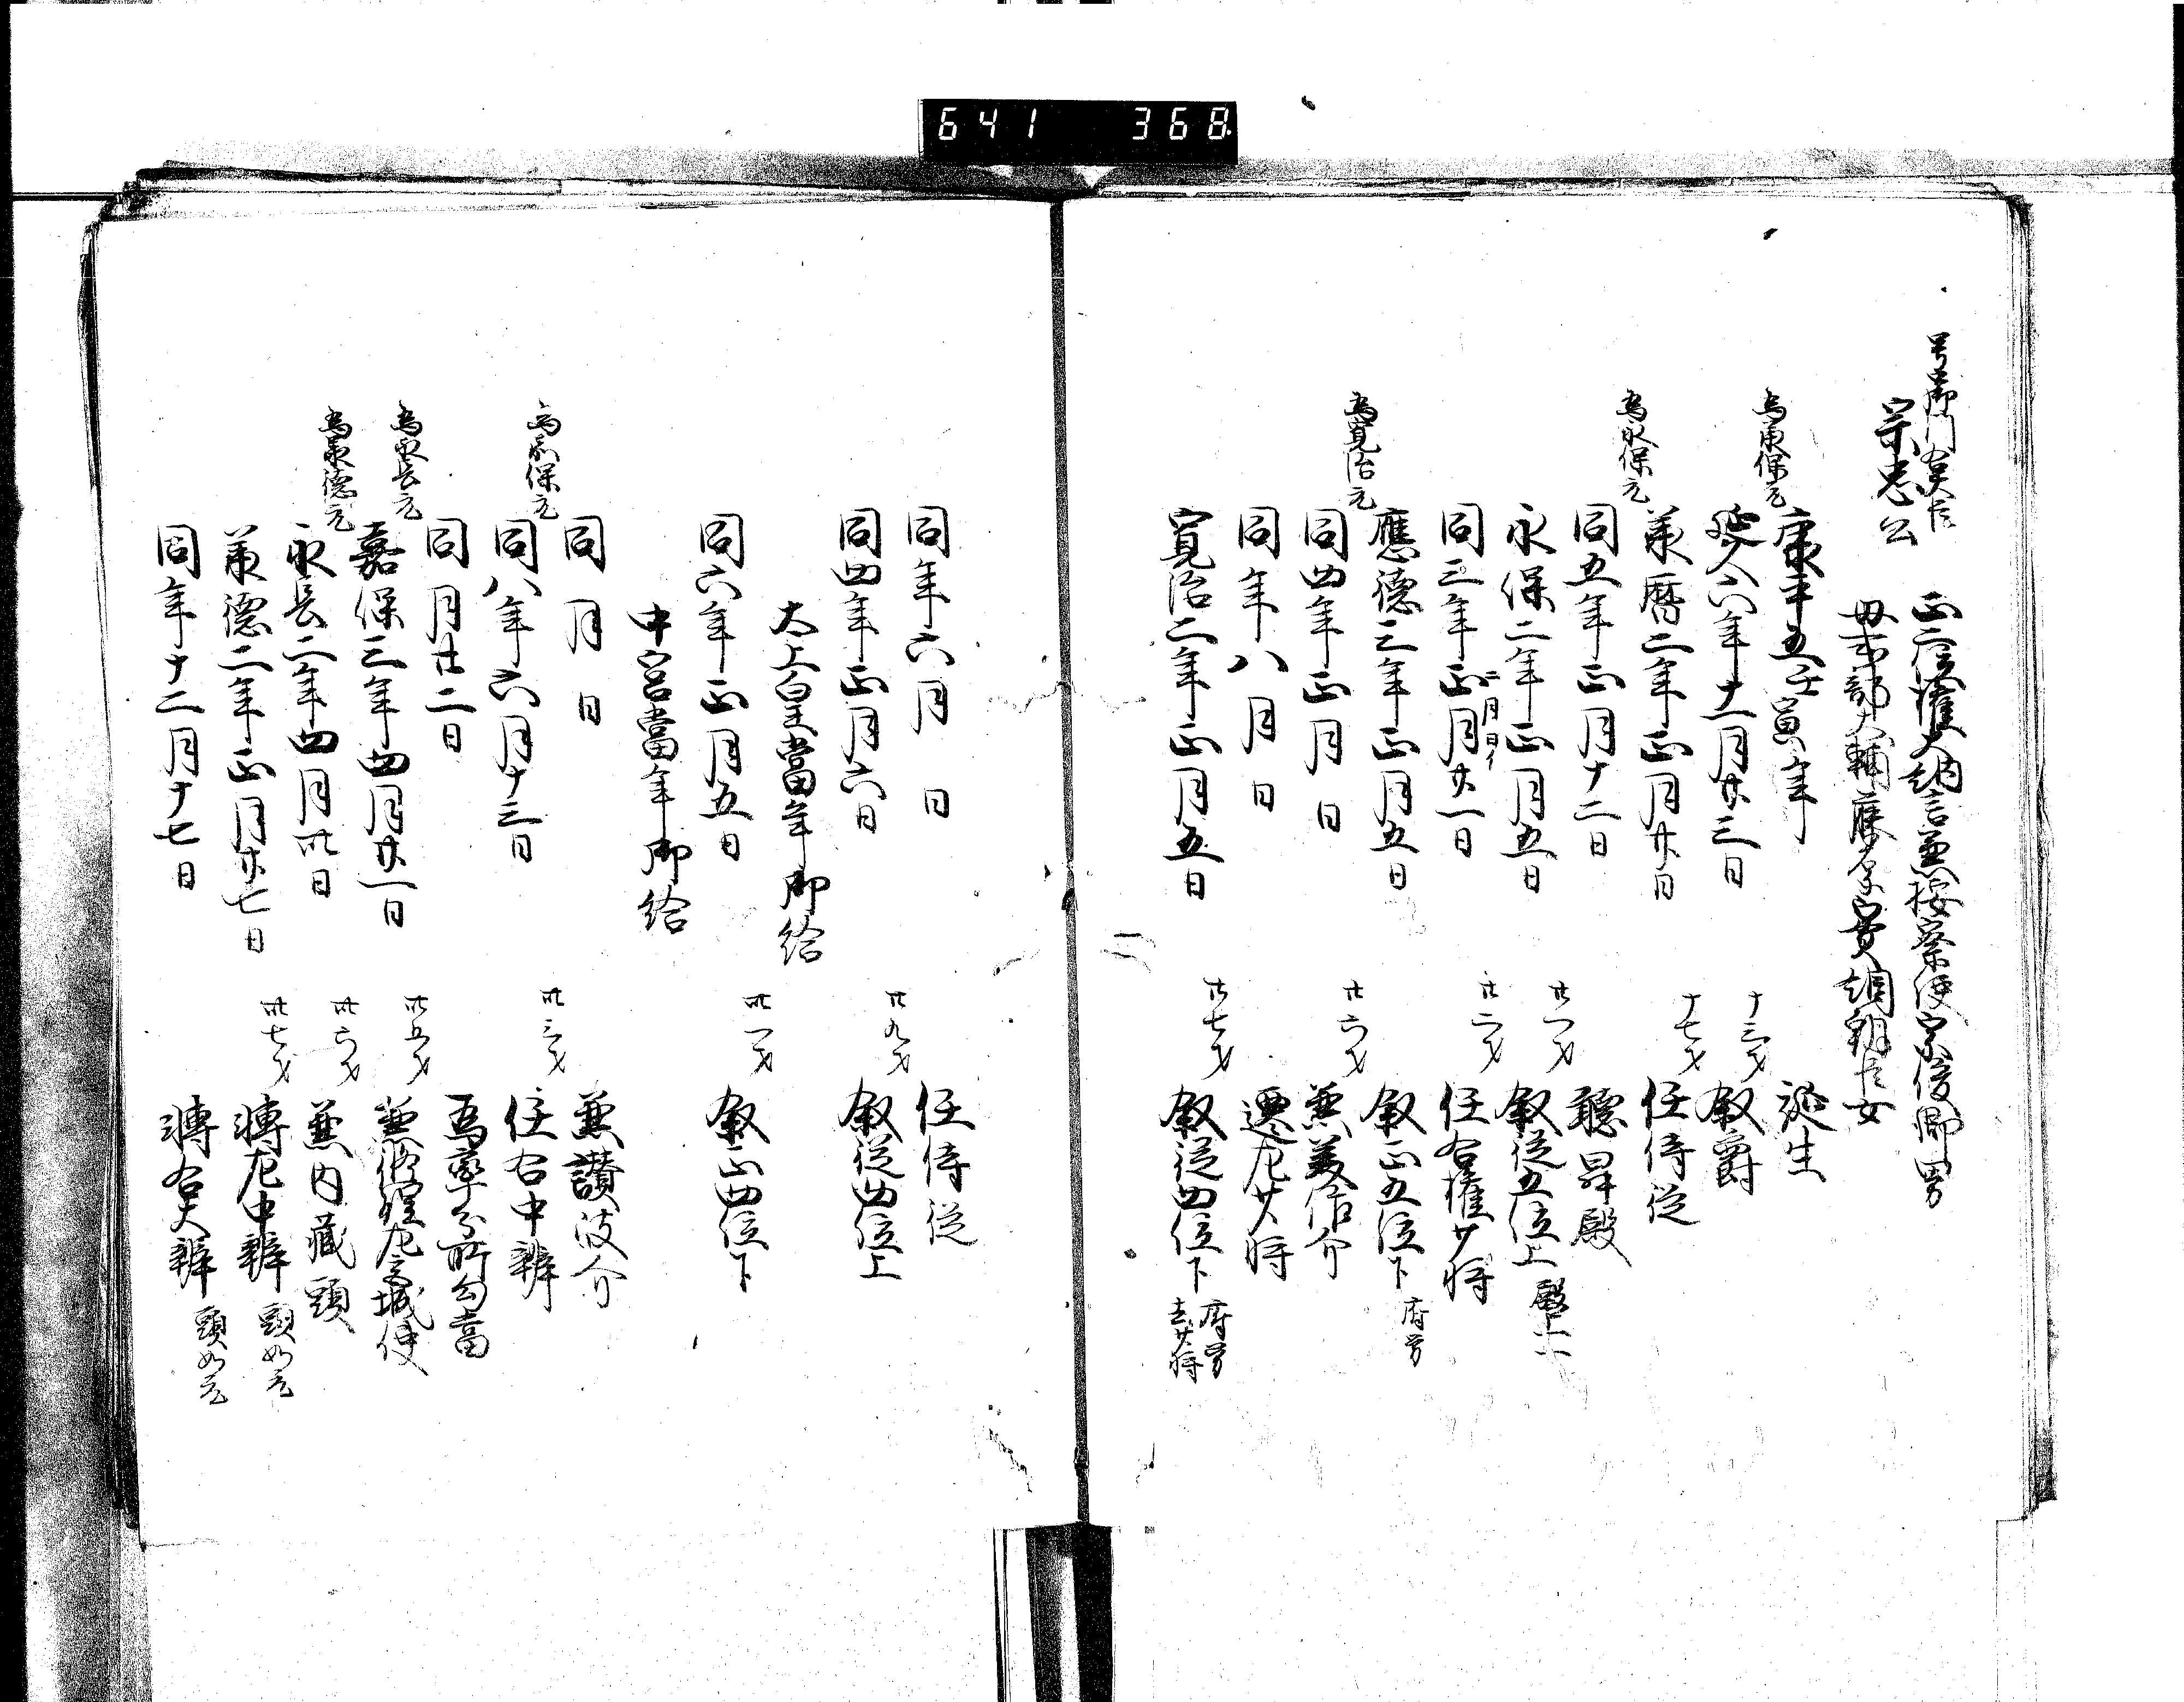 641 368
号中御門右大臣
宗忠公
正二位権大納言兼按察使宗俊卿男
母式部大輔藤原實綱朝臣女
康平五壬寅年 誕生
為承保元
延久六年十一月廿三日 十三才 叙爵
承暦二年正月廿日 十七才 任侍従
為永保元
同五年正月十二日 聴昇殿
永保二年正月五日 廿一才 叙従五位上 殿上一
同三年正月廿一日 廿二才 任右権少将
二月日イ
應徳三年正月五日 叙正五位下 府労
為寛治元
同四年正月 日 廿六才 兼美作介
同年八月 日 遷左少将
寛治二年正月五日 廿七才 叙従四位下 府労 去少将
同年六月 日 任侍従
同四年正月六日 廿九才 叙従四位上
太上皇當年御給
同六年正月五日 卅一才 叙正四位下
中宮當年御給
同 月 日 兼讃波介
為嘉保元
同八年六月十三日 卅三才 任右中辨
同 月廿二日 為率分所勾當
為永長元
嘉保三年四月廿一日 卅五才 兼修理左宮城使
為承徳元
永長二年四月卅日 卅六才 兼内蔵頭
承徳二年正月廿七日 卅七才 轉左中辨 頭如元
同年十二月十七日 轉右大辨 頭如元